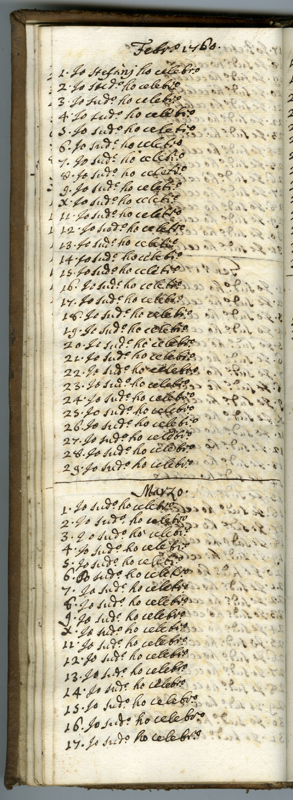 Febr.o 1760.
1. Io Stefanj ho celebr.o
2. Io sud.o ho celebr.o
3. Io sud.o ho celebr.o
4. Io sud.o ho celebr.o
5. Io sud.o ho celebr.o
6. Io sud.o ho celebr.o
7. Io sud.o ho celebr.o
8. Io sud.o ho celebr.o
9. Io sud.o ho celebr.o
X. Io sud.o ho celebr.o
11. Io sud.o ho celebr.o
12. Io sud.o ho celebr.o
13. Io sud.o ho celebr.o
14. Io sud.o ho celebr.o
15. Io sud.o ho celebr.o
16. Io sud.o ho celebr.o
17. Io sud.o ho celebr.o
18. Io sud.o ho celebr.o
19. Io sud.o ho celebr.o
20. Io sud.o ho celebr.o
21. Io sud.o ho celebr.o
22. Io sud.o ho celebr.o
23. Io sud.o ho celebr.o
24. Io sud.o ho celebr.o
25. Io sud.o ho celebr.o
26. Io sud.o ho celebr.o
27. Io sud.o ho celebr.o
28. Io sud.o ho celebr.o
29. Io sud.o ho celebr.o
Marzo.
1. Io sud.o ho celebr.o
2. Io sud.o ho celebr.o
3. Io sud.o ho celebr.o
4. Io sud.o ho celebr.o
5. Io sud.o ho celebr.o
6. Io sud.o ho celebr.o
7. Io sud.o ho celebr.o
8. Io sud.o ho celebr.o
9. Io sud.o ho celebr.o
X. Io sud.o ho celebr.o
11. Io sud.o ho celebr.o
12. Io sud.o ho celebr.o
13. Io sud.o ho celebr.o
14. Io sud.o ho celebr.o
15. Io sud.o ho celebr.o
16. Io sud.o ho celebr.o
17. Io sud.o ho celebr.o